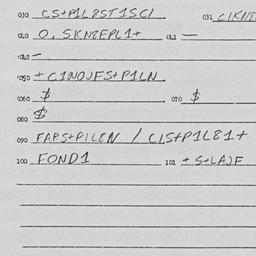 030 CS+P1L8ST1SC1 031 C1KN8
040 O. SKN8EPL1+ 041 —
042 —
050 +C1NOJFS+P1LN
060 $ 070 $
080 $
090 FAPS+P1L8N / C1S+P1L81+
100 FOND1 101 +S+LAJF